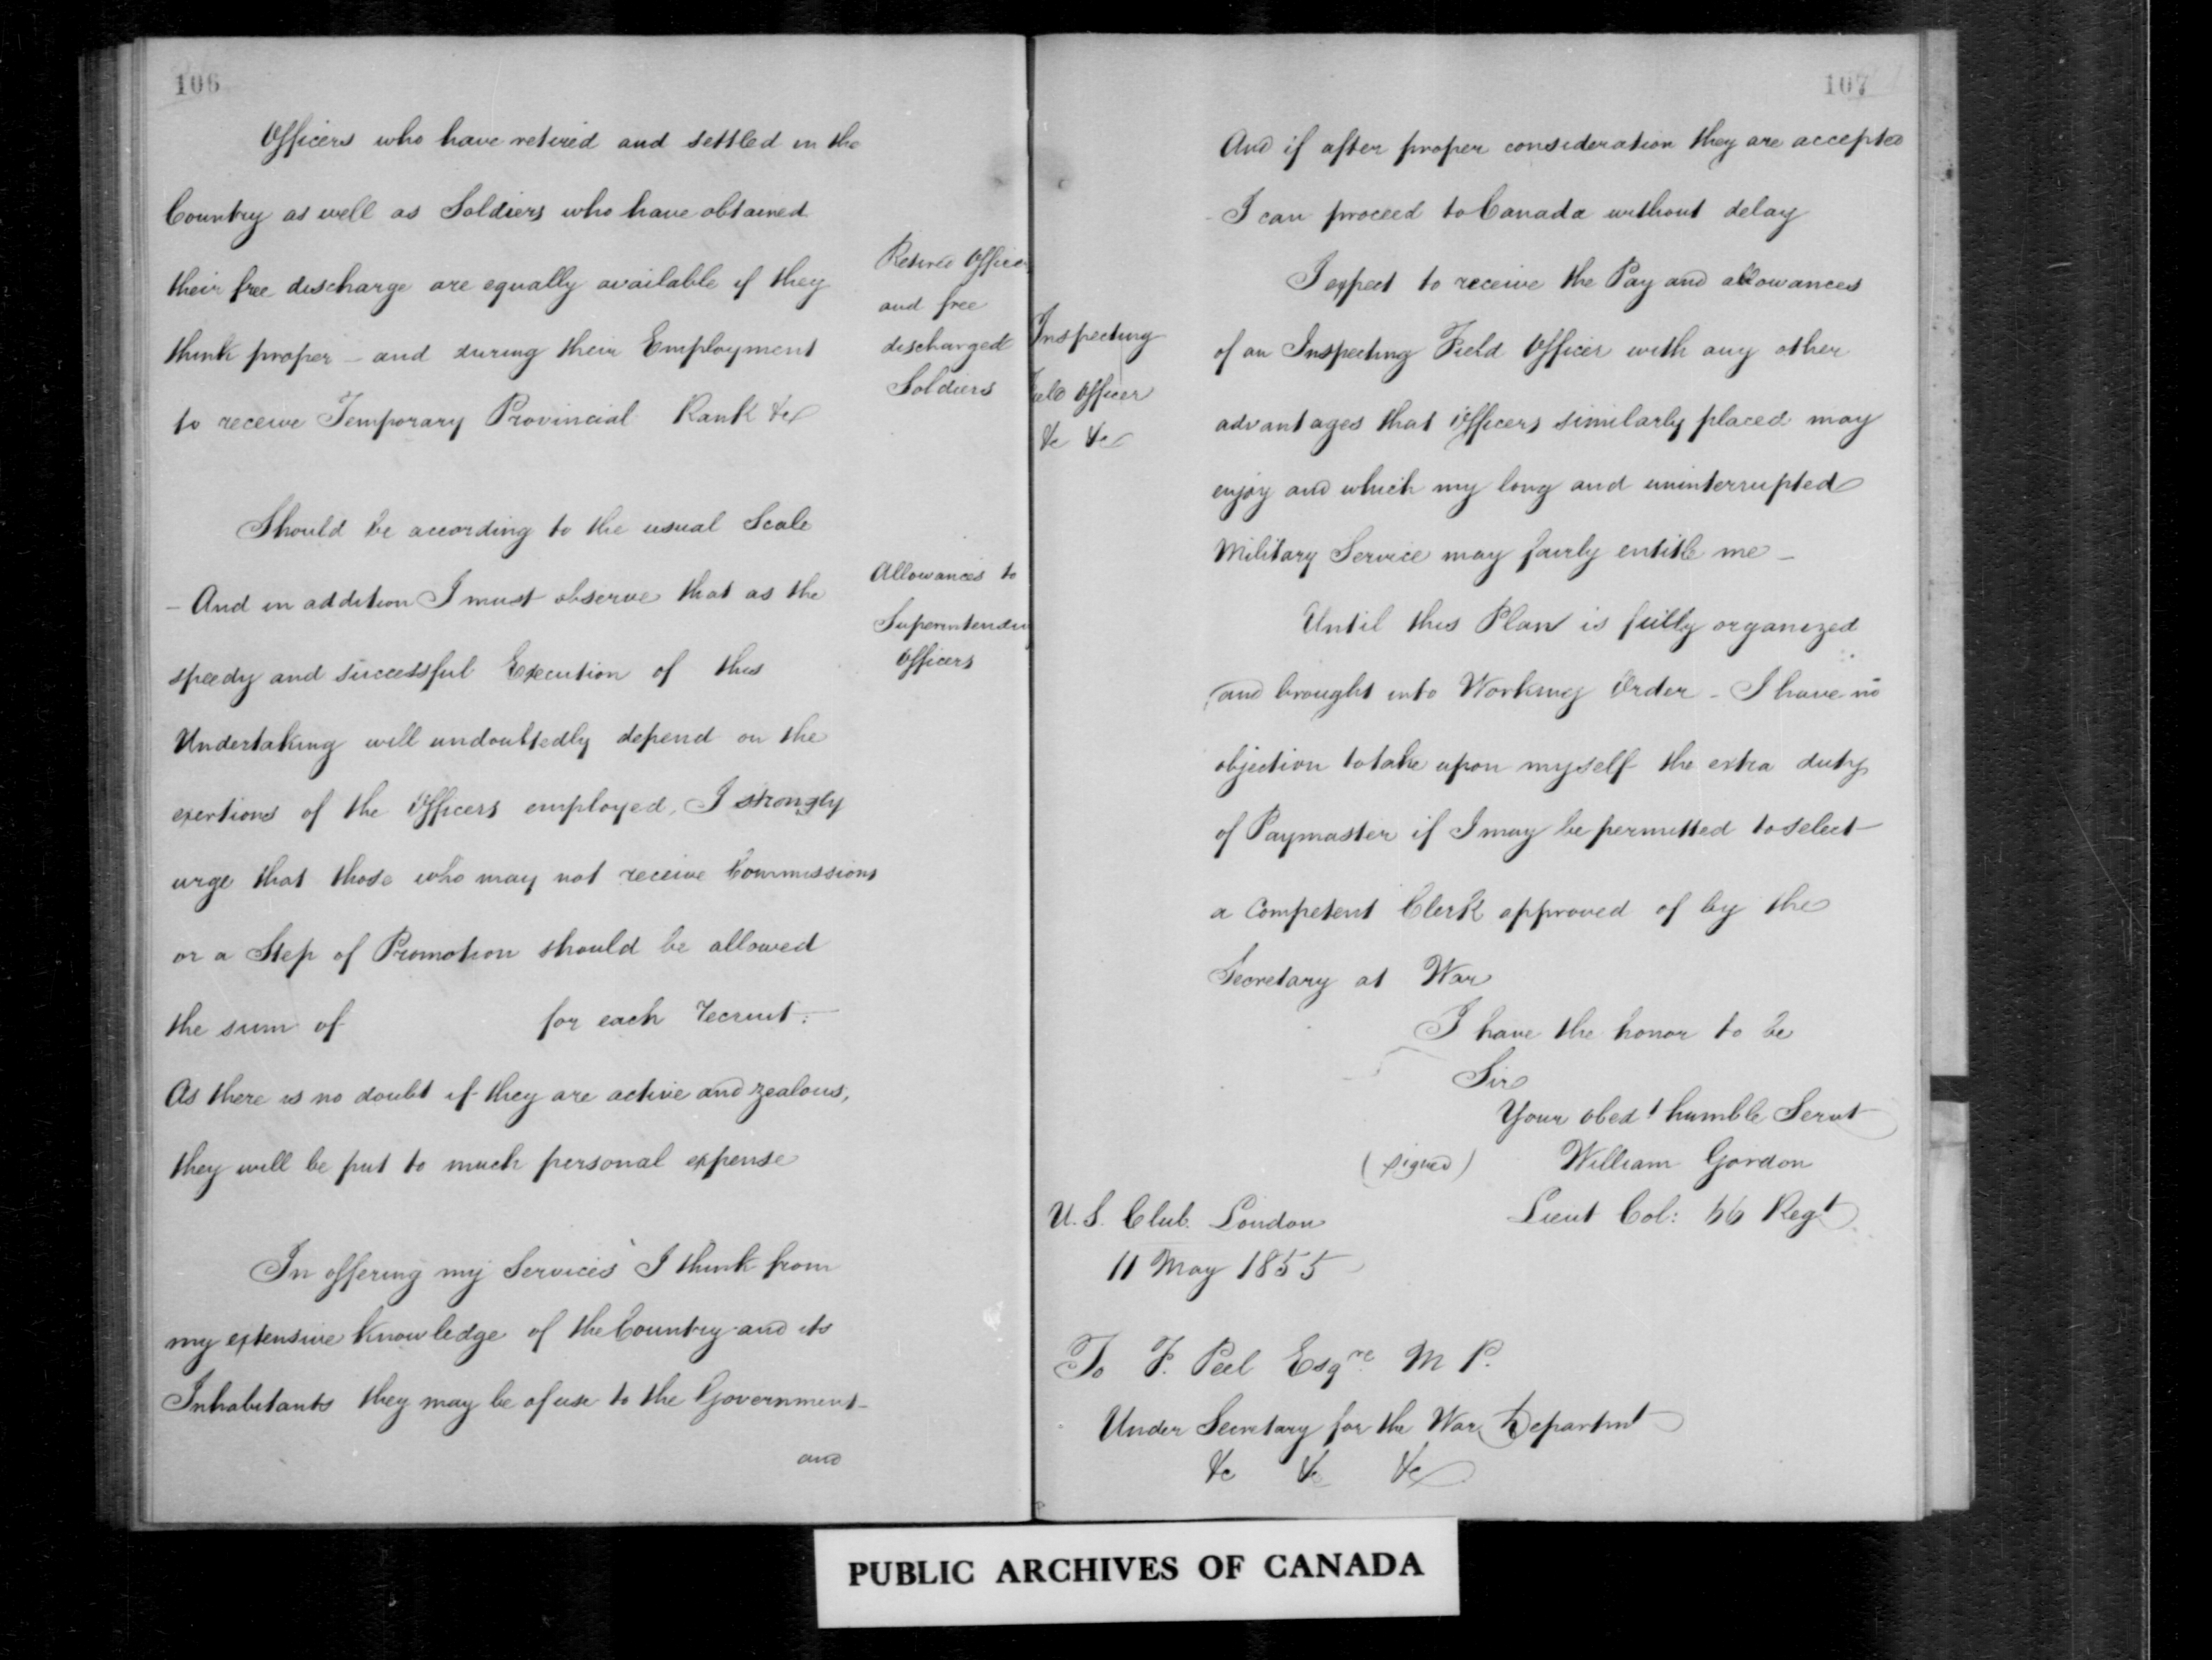 106
Officers who have retired and settled in the
Country as well as Soldiers who have obtained
their free discharge are equally available if they
think proper – and during their Employment
to receive Temporary Provincial Rank &c
Retired Officers
and free
discharged
Soldiers
Should be according to the usual Scale
– And in addition I must observe that as the
speedy and successful Execution of this
Undertaking will undoubtedly depend on the
exertions of the Officers employed, I strongly
urge that those who may not receive Commissions
or a Step of Promotion should be allowed
the sum of for each recruit:
As there is no doubt if they are active and zealous,
they will be put to much personal expense
Allowances to
Superintending
Officers
In offering my Services I think from
my extensive Knowledge of the Country and its
Inhabitants they may be of use to the Government
and
107
And if after proper consideration they are accepted
– I can proceed to Canada without delay
I expect to receive the Pay and allowances
of an Inspecting Field Officer with any other
advantages that Officers similarly placed may
enjoy and which my long and uninterrupted
Military Service may fairly entitle me –
Inspecting
Field Officer
&c &c
Until this Plan is fully organized
and brought into Working Order – I have no
objection to take upon myself the extra duty
of Paymaster if I may be permitted to select
a Competent Clerk approved of by the
Secretary at War
I have the honor to be
Sir
Your obedt humble Servt
(signed) William Gordon
Lieut Col: 66 Regt
U.S. Club. London
11 May 1855
To F. Peel Esqre M P.
Under Secretary for the War Departmt
&c &c &c
PUBLIC ARCHIVES OF CANADA